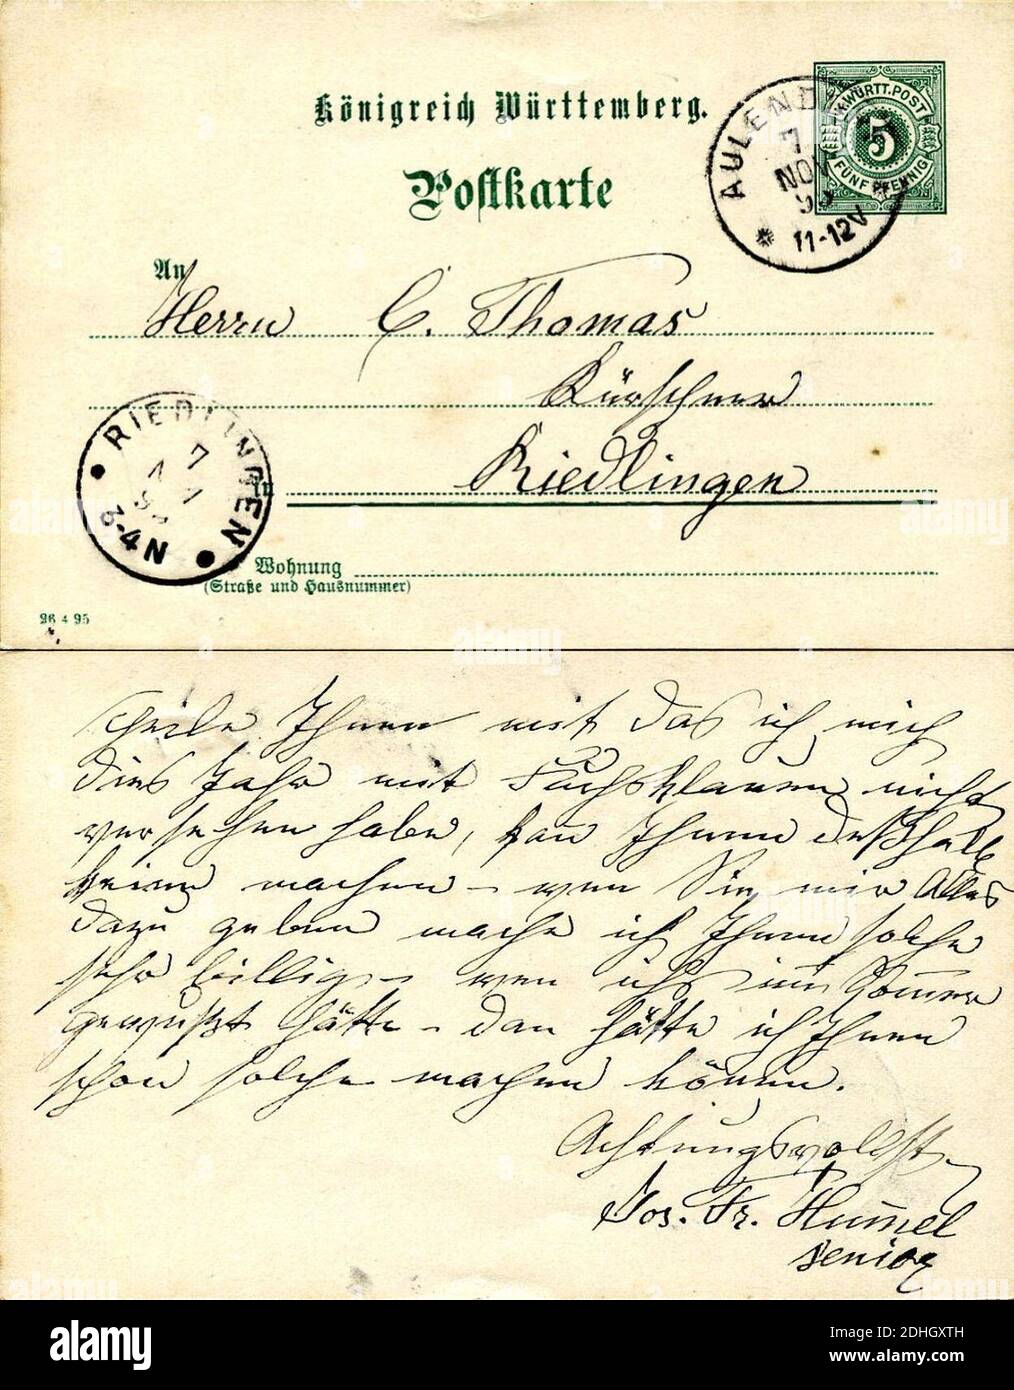 Königreich Württemberg.
Postkarte
K. WÜRTT. POST
5
FÜNF PFENNIG
AULENDORF
7
NOV
11-12V
An
Herrn C. Thomas
Kürschner
Riedlingen
RIEDLINGEN
3-4N
Wohnung
(Straße und Hausnummer)
26 4 95
theile Ihnen mit das ich mich
dies Jahr mit Fuchsklauen nicht
versehen habe, kan Ihnen deßhalb
keine machen - wen Sie mir Alles
dazu geben mache ich Ihnen solche
sehr billig - wen ich im Sommer
gewußt hätte - dan hätte ich Ihnen
schon solche machen können.
Achtungsvollst
Jos. Fr. Hummel
senior
alamy
Image ID: 2DHGXTH
www.alamy.com